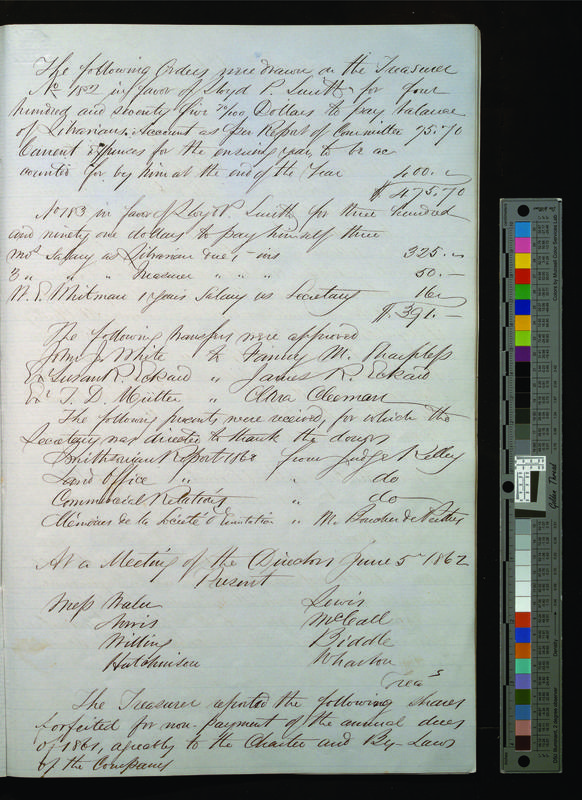 The following Orders were drawn on the Treasurer
No 782 in favor of Lloyd P. Smith for four
hundred and seventy five 70/100 Dollars to pay balance
of Librarians Account as per Report of Committee 75.70
Current expences for the ensuing year, to be ac
counted for by him at the end of the Year 400.
$475.70
No 783 in favor of Lloyd P. Smith for three hundred
and ninety one dollars to pay himself three
mos Salary as Librarian due, 325.
3 " " " Treasurer " " " 50.—
W. E. Whitman 1 years Salary as Secretary 16
$.391.—
The following transfers were approved
John J. White to Fanny M. Sharpless
Exr Susan R. Eckard " James R. Eckard
Exr T. D. Mütter " Clara Cleeman
The following presents were received, for which the
Secretary was directed to thank the donors
Smithsonian Report 1860 from Judge Kelley
Land Office " " do
Commercial Relations " do
Mémoires de la Société d'Emulation " M. Boucher de Perthes
At a Meeting of the Directors June 5th 1862
Present
Mess Waln Lewis
Norris McCall
Willing Biddle
Hutchinson Wharton
Treas
The Treasurer reported the following shares
forfeited for non-payment of the annual dues
of 1861, agreeably to the Charter and By-Laws
of the Company
Golden Thread